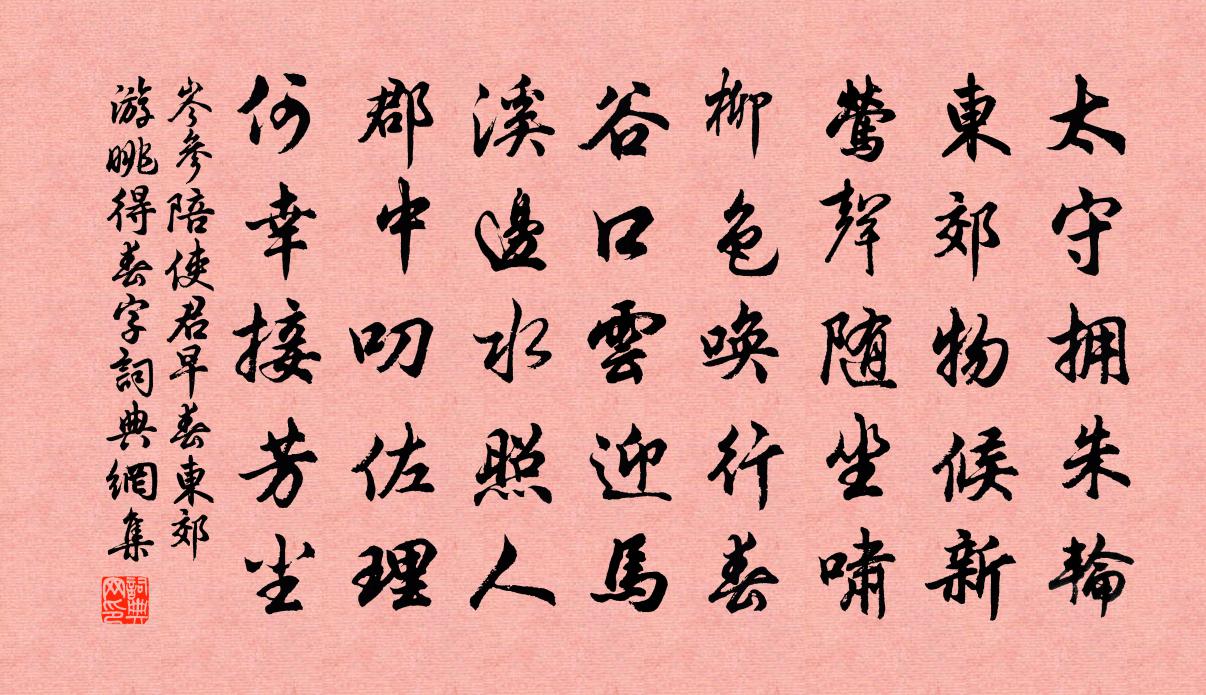 太守拥朱輪
東郊物候新
鶯聲随坐嘯
柳色喚行春
谷口雲迎馬
溪邊水照人
郡中叨佐理
何幸接芳尘
岑參陪使君早春東郊
游眺得春字詞典網集
詞典
网印